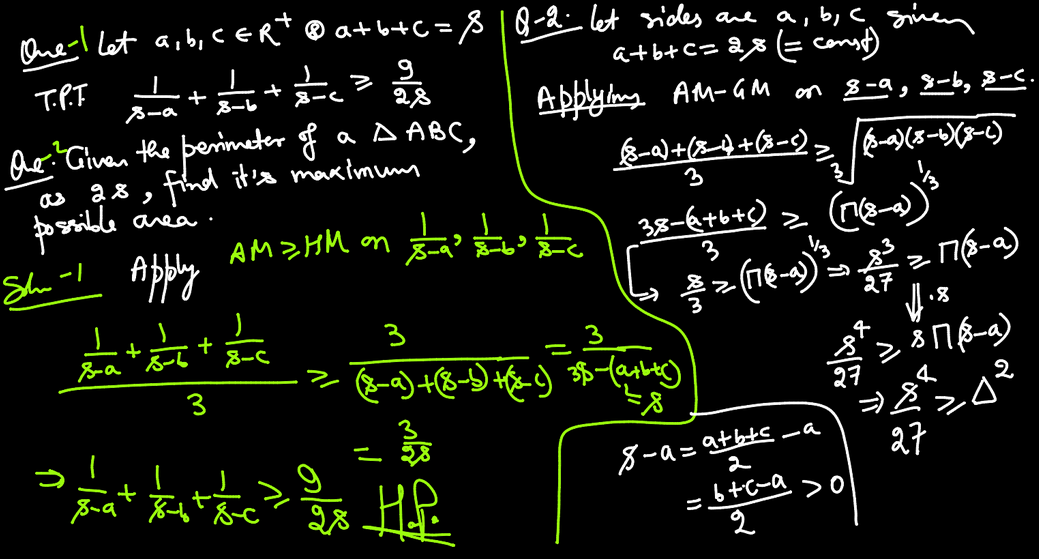 Que-1 Let a, b, c ∈ R⁺ & a+b+c = s
T.P.T. 1/(s-a) + 1/(s-b) + 1/(s-c) ≥ 9/(2s)
Que-2 Given the perimeter of a Δ ABC,
as 2s, find it's maximum
possible area.
Soln-1 Apply AM ≥ HM on 1/(s-a), 1/(s-b), 1/(s-c)
(1/(s-a) + 1/(s-b) + 1/(s-c))/3 ≥ 3/((s-a)+(s-b)+(s-c)) = 3/(3s-(a+b+c))
= s
= 3/(2s)
⇒ 1/(s-a) + 1/(s-b) + 1/(s-c) ≥ 9/(2s) H.P.
Q-2. Let sides are a, b, c given
a+b+c = 2s (= const)
Applying AM-GM on s-a, s-b, s-c.
((s-a)+(s-b)+(s-c))/3 ≥ ∛((s-a)(s-b)(s-c))
(3s-(a+b+c))/3 ≥ (Π(s-a))^(1/3)
⇒ s/3 ≥ (Π(s-a))^(1/3) ⇒ s³/27 ≥ Π(s-a)
⇓ .s
s⁴/27 ≥ s Π(s-a)
⇒ s⁴/27 ≥ Δ²
s-a = (a+b+c)/2 - a
= (b+c-a)/2 > 0